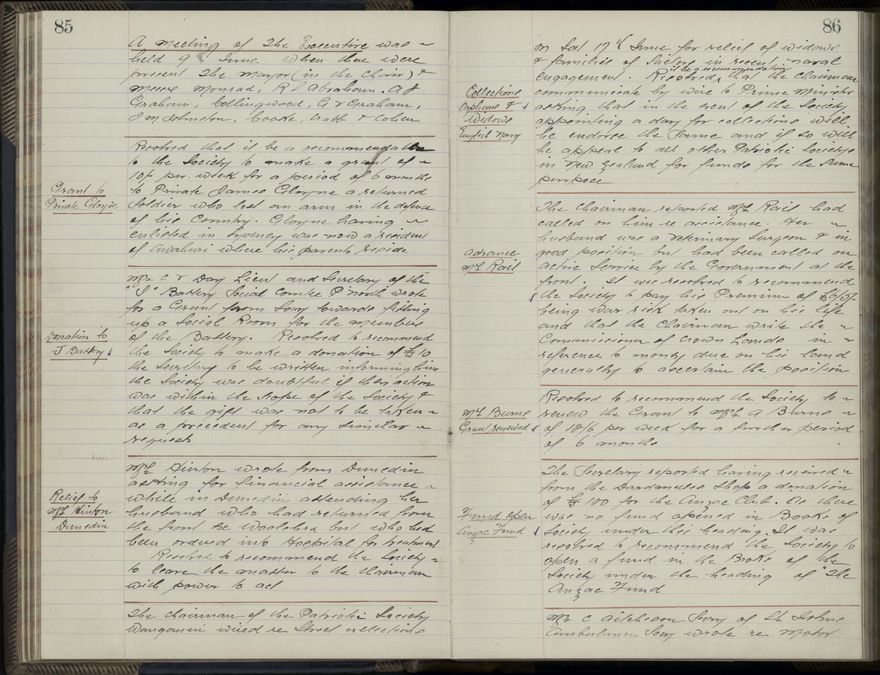 85
A meeting of the Executive was
held 9th June. When there were
present the Mayor (in the Chair) &
Messrs Monrad, R L Abraham, A J
Graham, Collingwood, G V Graham,
J M Johnston, Cooke, Watt & Cohen
Resolved that it be a recommendation
to the Society to make a grant of
10/- per week for a period of 6 months
Grant to
Private Cloyne
to Private James Cloyne a returned
Soldier who lost an arm in the defence
of his Country. Cloyne having
enlisted in Sydney was now a resident
of Awahuri where his parents reside
Mr C V Day Lieut and Secretary of the
"J" Battery Social Comtee P North wrote
for a Grant from Socy towards fitting
up a Social Room for the members
Donation to
J Battery
of the Battery. Resolved to recommend
the Society to make a donation of £10
the Secretary to be written informing him
the Society was doubtful if this action
was within the scope of the Society &
that the gift was not to be taken
as a precedent for any similar
request
Relief to
Mrs Hinton
Dunedin
Mrs Hinton wrote from Dunedin
asking for financial assistance
while in Dunedin attending her
husband who had returned from
the front but who had
been ordered into Hospital for treatment
Resolved to recommend the Society
to leave the matter to the Chairman
with power to act
The Chairman of the Patriotic Society
Wanganui wired re Street collections
86
on Sat 17th June for relief of widows
& families of Sailors in recent naval
engagement. Resolved that the Chairman
Collections
Orphans &
Widows
English Navy
communicate by wire to Prime Minister
asking that in the event of the Society
appointing a day for collections will
he endorse the same and if so will
he appeal to all other Patriotic Societys
in New Zealand for funds for the same
purpose
The Chairman reported Mrs Rait had
called on him re assistance. Her
husband was a Veterinary Surgeon & in
Advance
Mrs Rait
good position but had been called on
active Service by the Government at the
front. It was resolved to recommend
the Society to pay his Premium of
being war risk taken out on his life
and that the Chairman write the
Commissioner of Crown Lands in
reference to money due on his land
generally to ascertain the position
Mrs Burne
Grant renewed
Resolved to recommend the Society to
renew the Grant to Mrs A Burne
of 10/6 per week for a further period
of 6 months
The Secretary reported having received
from the Dardanelles Shop a donation
of £100 for the Anzac Club. As there
Fund Open
Anzac Fund
was no fund opened in Books of
Society under this heading. It was
resolved to recommend the Society to
open a fund in the Books of the
Society under the heading of "The
Anzac Fund
Mr C Aitcheson Secy of St Johns
Ambulance Socy wrote re Motor